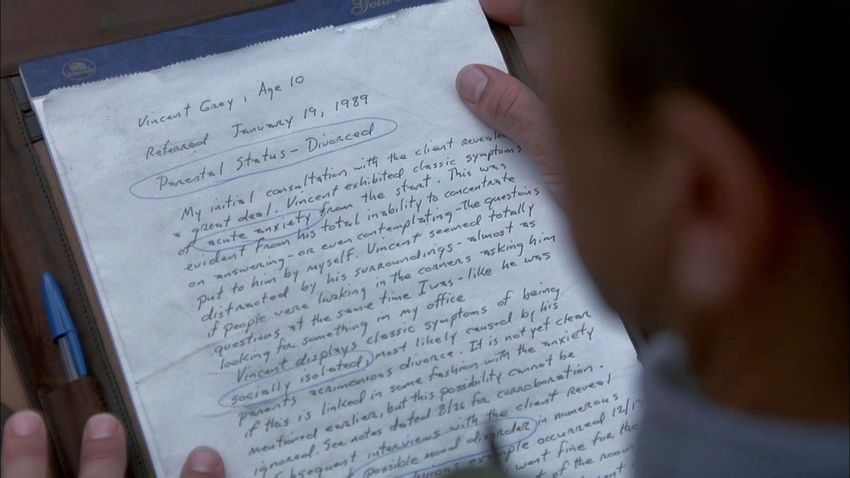 Gold
Vincent Grey, Age 10
Referred January 19, 1989
Parental Status - Divorced
My initial consultation with the client revealed
a great deal. Vincent exhibited classic symptoms
of acute anxiety from the start. This was
evident from his total inability to concentrate
on answering - or even contemplating - the questions
put to him by myself. Vincent seemed totally
distracted by his surroundings - almost as
if people were lurking in the corners asking him
questions at the same time I was - like he was
looking for something in my office
Vincent displays classic symptoms of being
socially isolated, most likely caused by his
parents acrimonious divorce. It is not yet clear
if this is linked in some fashion with the anxiety
mentioned earlier, but this possibility cannot be
ignored. See notes dated 8/26 for corroboration.
Subsequent interviews with the client reveal
possible mood disorder in numerous
example occurred 12/1
went fine for the
of the room